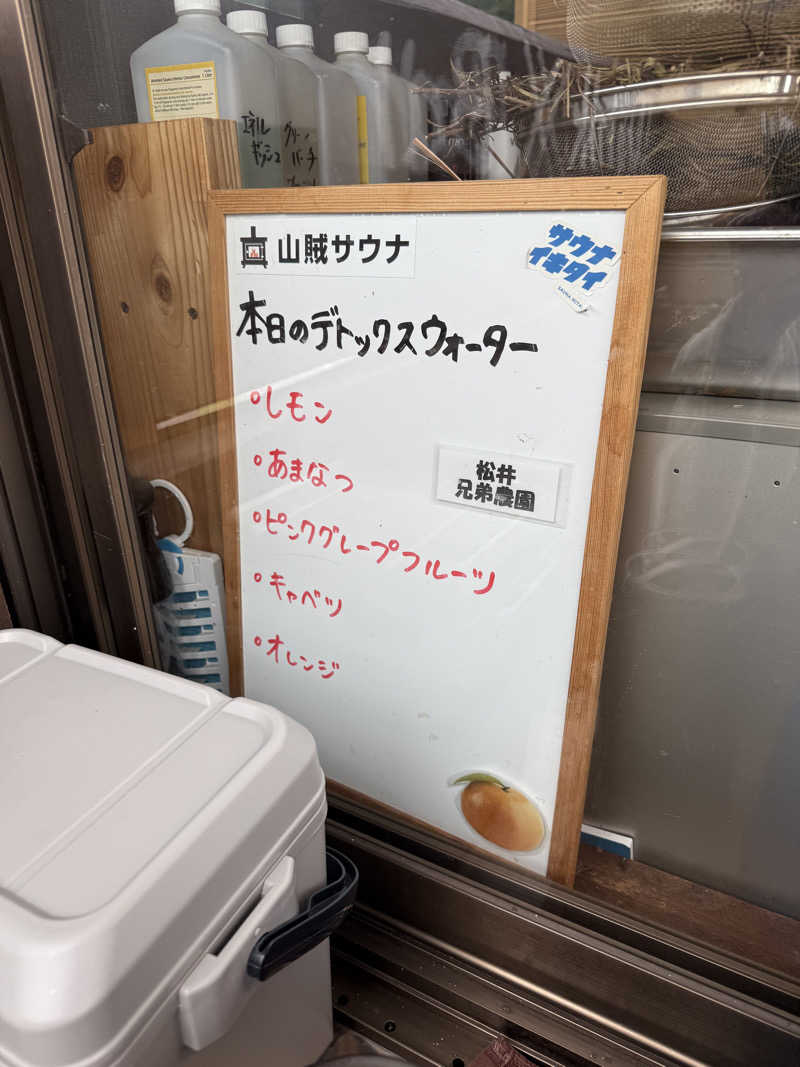 エネル
ギッシュ
グリーン
バーチ
山賊サウナ
サウナ
イキタイ
本日のデトックスウォーター
•レモン
•あまなつ
松井
兄弟農園
•ピンクグレープフルーツ
•キャベツ
•オレンジ